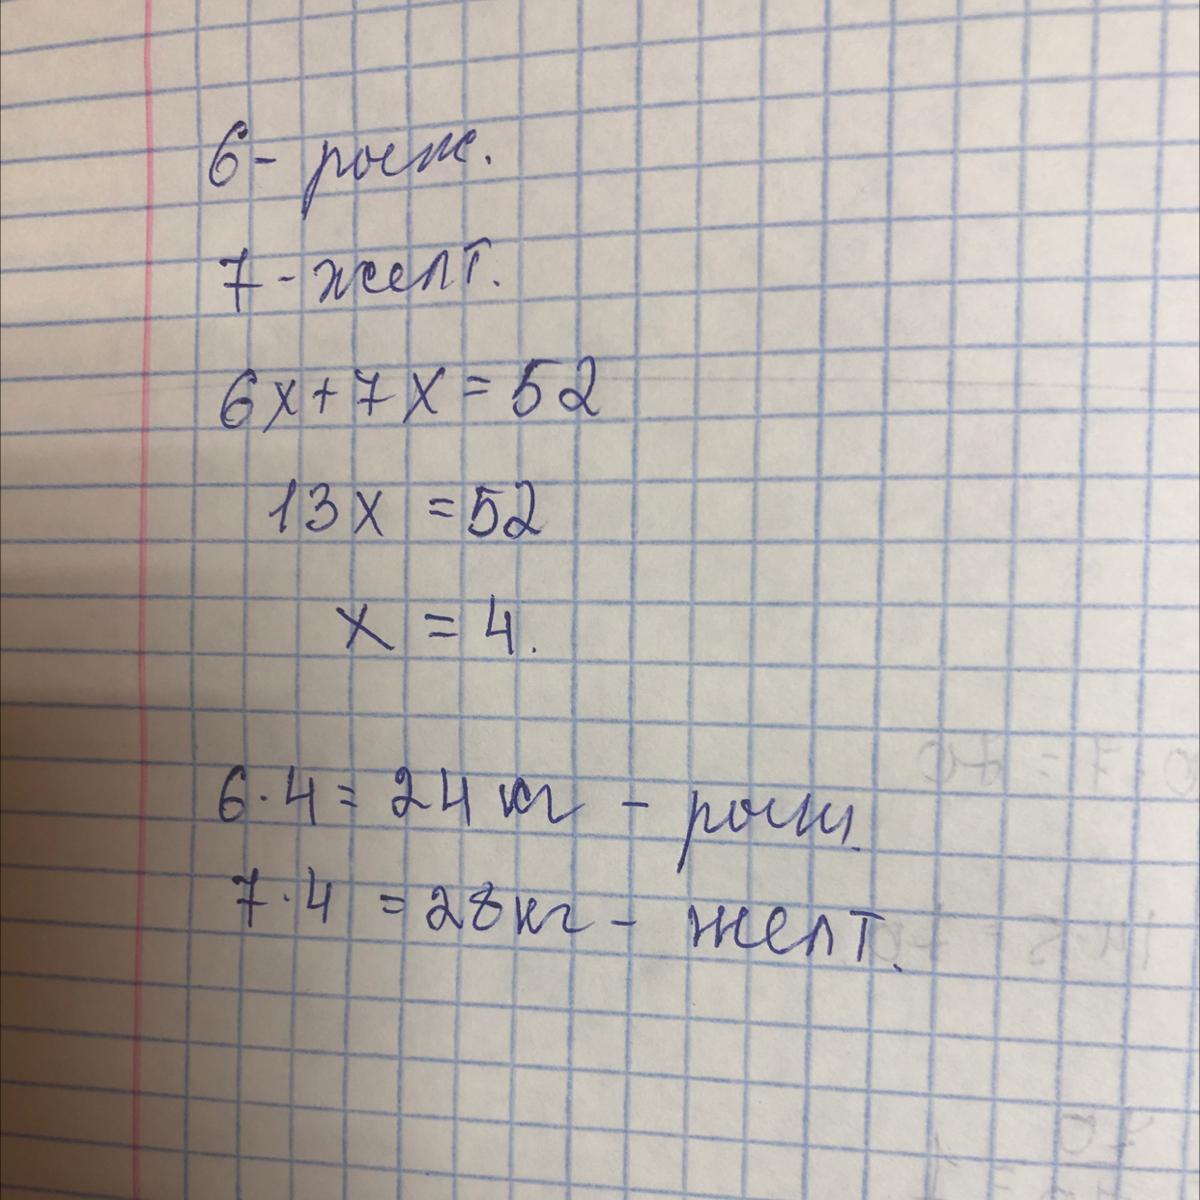 6 - рыж.
7 - желт.
6x + 7x = 52
13x = 52
x = 4.
6 · 4 = 24 кг -
7 · 4 = 28 кг - желт.